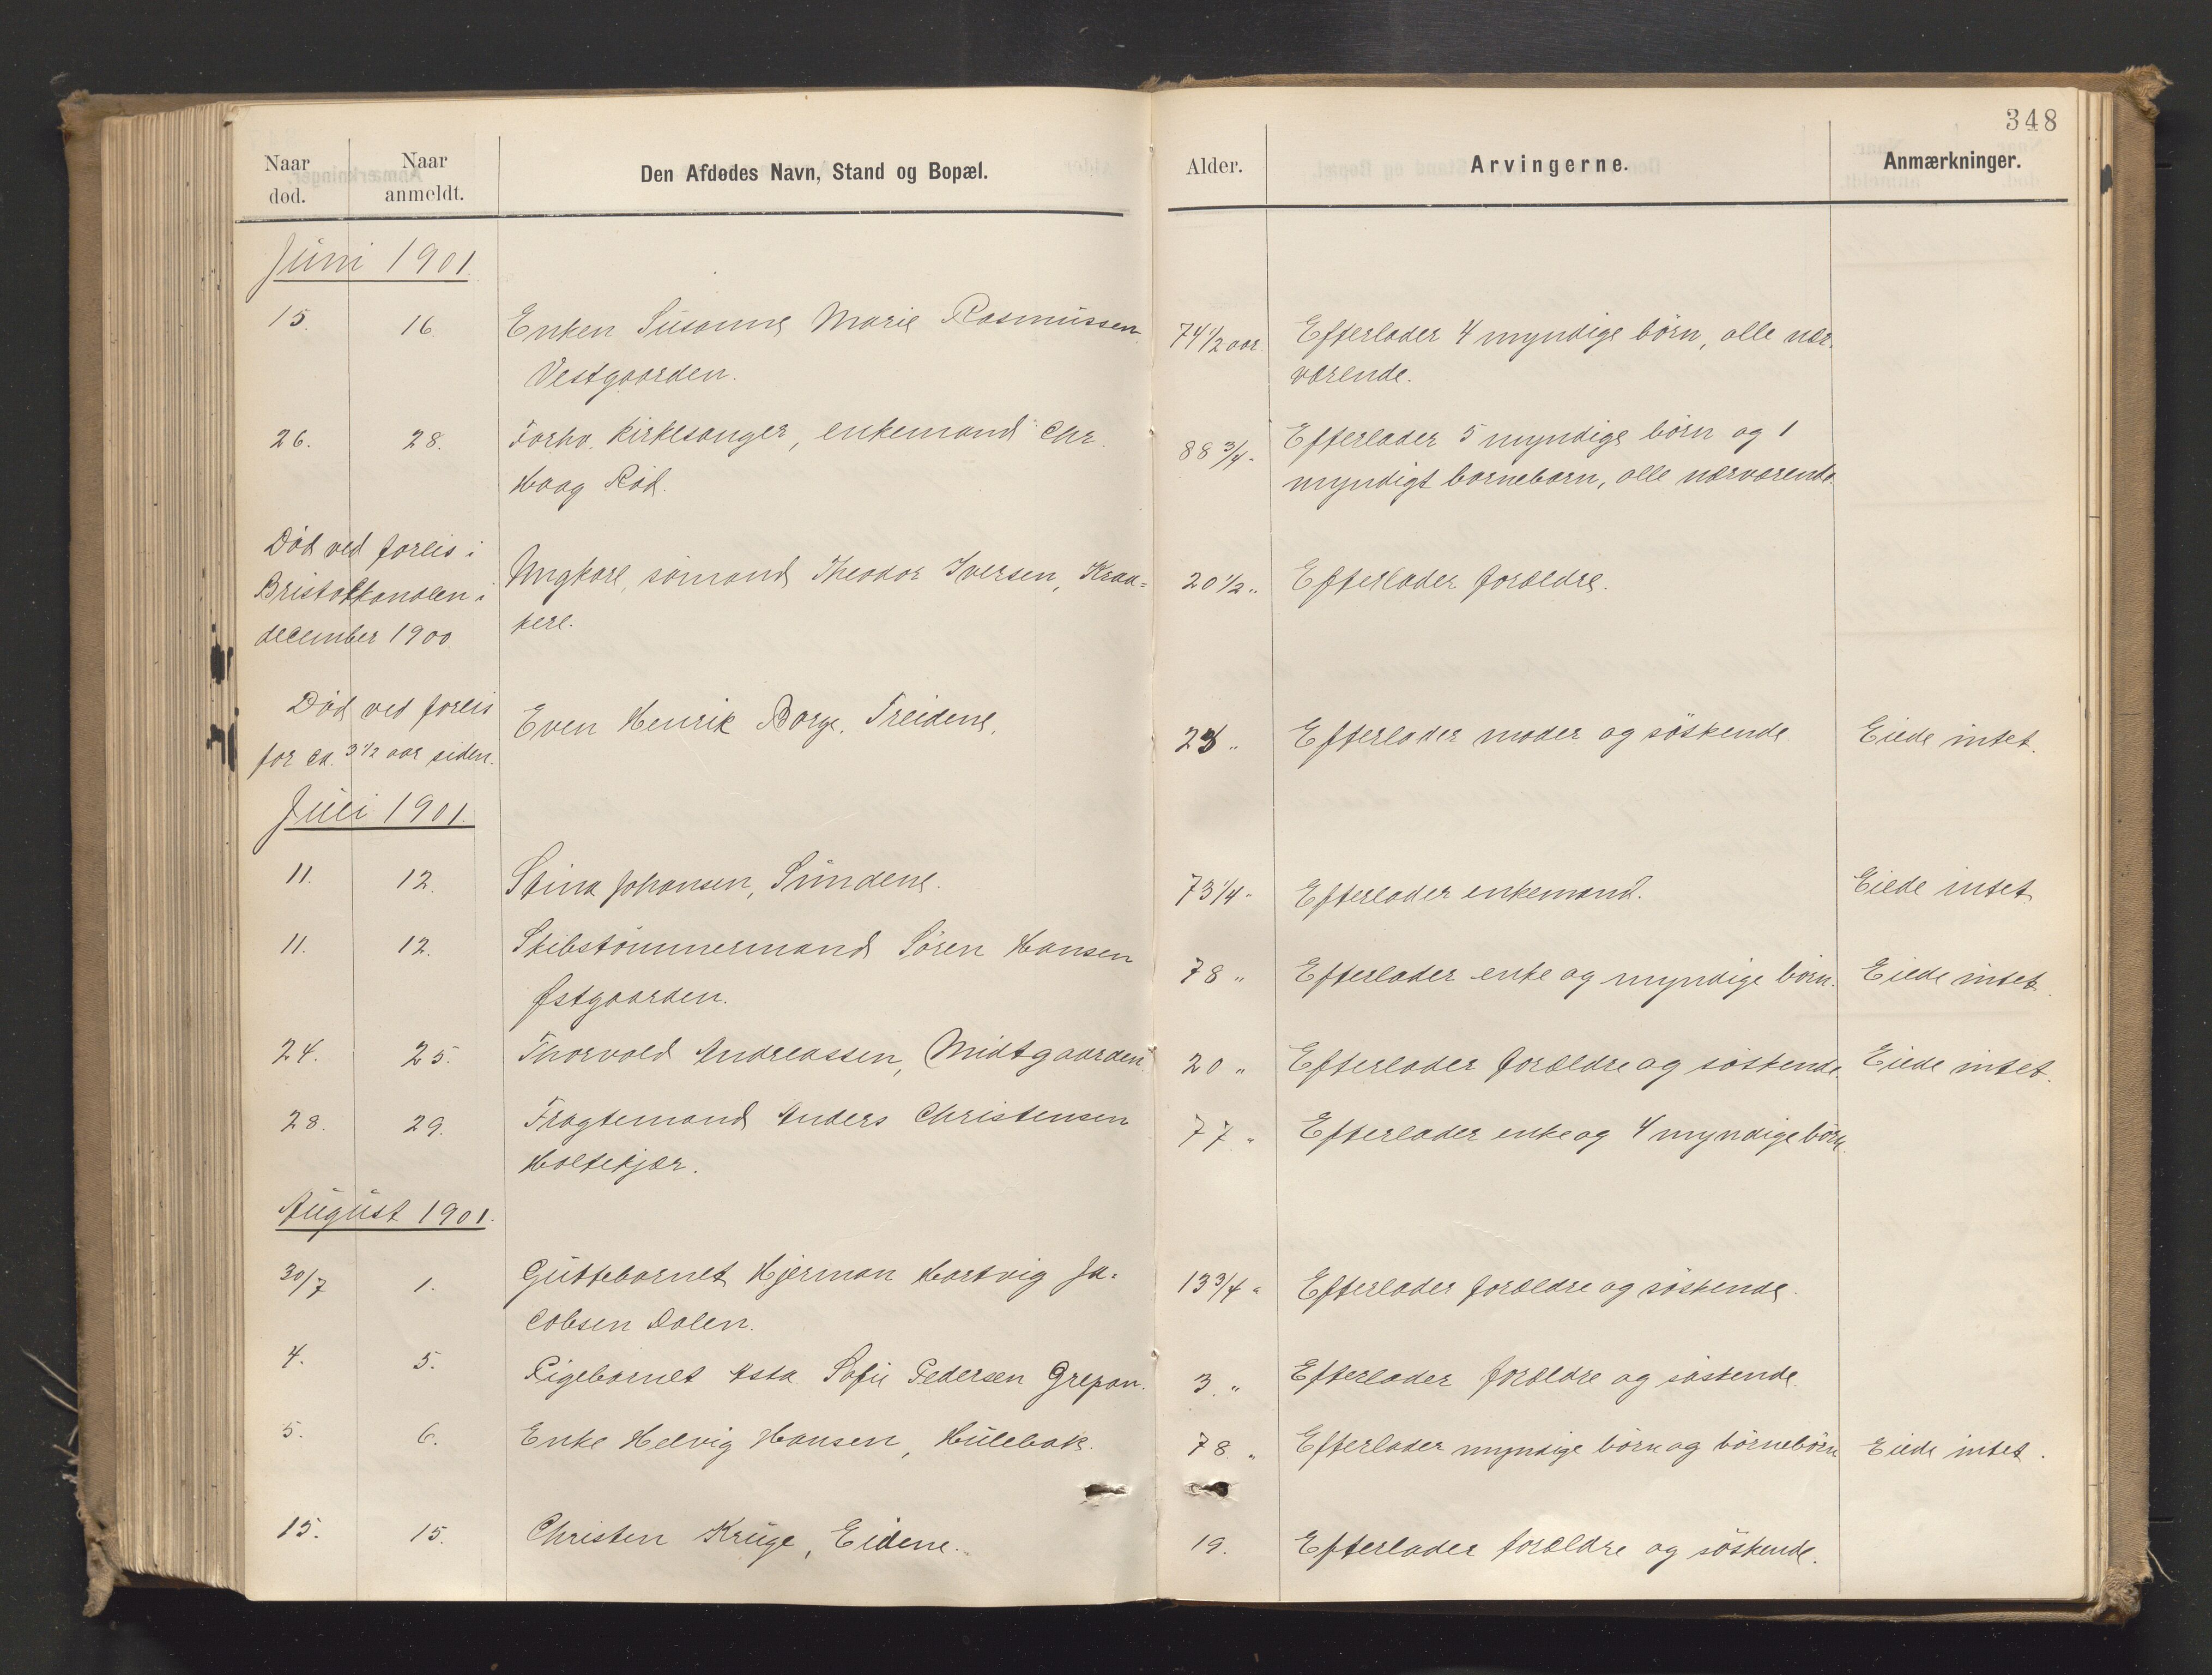 348
Naar død. Naar anmeldt. Den Afdødes Navn, Stand og Bopæl. Alder. Arvingerne. Anmærkninger.
Juni 1901.
15. 16. Enken Susanne Marie Rasmussen 74 1/2 aar. Efterlader 4 myndige børn, alle nær-
Vestgaarden. værende.
26. 28. Forhv. kirkesanger, enkemand Chr. 88 3/4 " Efterlader 5 myndige børn og 1
Haag Rød. myndigt barnebarn, alle nærværende.
Død ved forlis i
Bristolkanalen i Ungkarl, sømand Theodor Iversen, Kraa= 20 1/2 " Efterlader forældre.
december 1900. kere.
Død ved forlis Even Henrik Borge, Treidene. Efterlader moder og søskende. Eiede intet.
for ca. 3 1/2 aar siden.
Juli 1901.
11. 12. Stina Johansen, Sundene. 73 1/4 " Efterlader enkemand. Eiede intet
11. 12. Skibstømmermand Søren Hansen 78 " Efterlader enke og myndige børn. Eiede intet.
Østgaarden.
24. 25. Thorvald Andreassen, Midtgaarden. 20 " Efterlader forældre og søskende. Eiede intet.
28. 29. Fragtemand Anders Christensen 77 " Efterlader enke og 4 myndige børn.
Holtekjær.
August 1901.
30/7 1. Guttebarnet Hjerman Hartvig Ja= 13 3/4 " Efterlader forældre og søskende.
cobsen Dalen.
4. 5. Pigebarnet Asta Sofie Pedersen Grepan. 3. " Efterlader forældre og søskende.
5. 6. Enke Helvig Hansen, Hulebak. 78. " Efterlader myndige børn og børnebørn Eiede intet.
15. 15. Christen Kruge, Eidene. 19. Efterlader forældre og søskende.